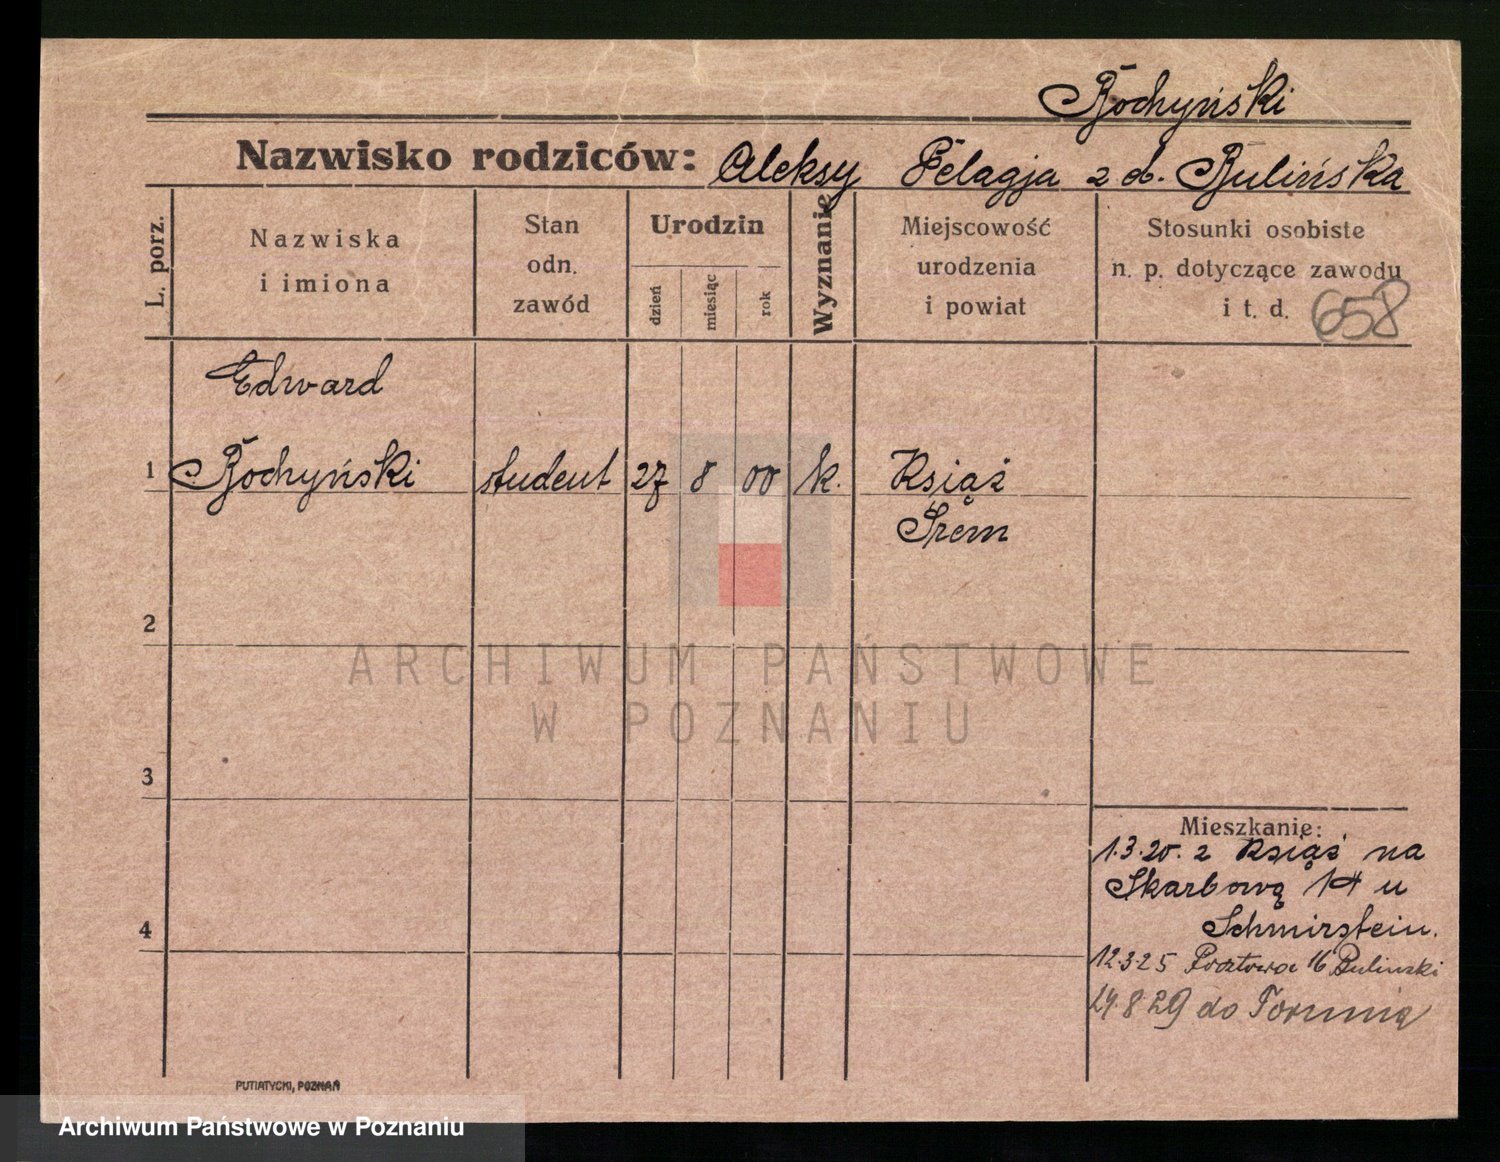 Bochyński
Nazwisko rodziców: Aleksy Pelagja z d. Bulińska
L. porz.
Nazwiska
i imiona
Stan
odn.
zawód
Urodzin
dzień
miesiąc
rok
Wyznanie
Miejscowość
urodzenia
i powiat
Stosunki osobiste
n. p. dotyczące zawodu
i t. d. 658
Edward
1 Bochyński student 27 8 00 k. Książ
Śrem
2
ARCHIWUM PAŃSTWOWE
W POZNANIU
3
Mieszkanie:
1.3.20. z Książ na
Skarbową 14 u
Schmirstein.
4
12.3.25 Pocztowa 16 Bulinski
24.8.29 do Torunia
PUTIATYCKI, POZNAŃ
Archiwum Państwowe w Poznaniu